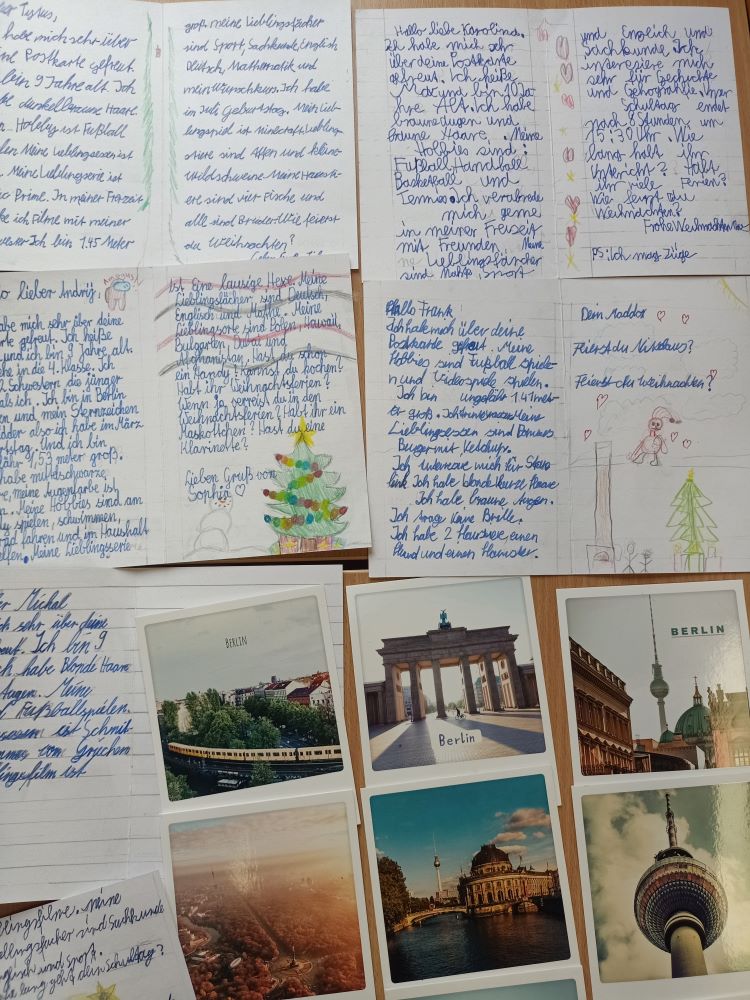 Tytus,
habe mich sehr über
ne Postkarte gefreut.
bin 9 Jahre alt. Ich
dunkelbraune Haare
Hobby ist Fußball
len. Meine Lieblingsessen ist
Meine Lieblingsserie ist
Prime. In meiner Freizeit
ich Filme mit meiner
Ich bin 1.45 Meter
groß meine Lieblingsfächer
sind Sport, Sachkunde, Englisch
Deutsch, Mathematik und
mein Wunschkurs. Ich habe
im Juli Geburtstag. Mein Lieb-
lingsspiel ist minecraft. Liebling-
stiere sind Affen und kleine
wildschweine. Meine Hausti-
ere sind vier Fische und
alle sind Brüder. Wie feierst
du Weihnachten?
Hallo liebe Karolina.
Ich habe mich sehr
über deine Postkarte
gefreut. Ich heiße
Max und bin 10 Ja
hre Alt. Ich habe
braune Augen und
braune Haare. Meine
Hobbies sind:
Fußball, Handball
Basketball und
Tennis. Ich verabrede
mich gerne
in meiner Freiseit
mit Freunden. Meine
Lieblingsfärcher
sind Mahte, Sport
und Englich und
Sachkunde. Ich
interesiere mich
sehr für Geschichte
und Gehographie. Unser
Schultag endet
nach 8 Stunden, um
15:30 Uhr. Wie
lang halt ihr
Unterricht? Habt
ihr viele Ferien?
Wie feierst du
Weihnachten?
Frohe Weihnachten Max
PS: Ich mag Züge
Amogus
lieber Andrij,
habe mich sehr über deine
gefreut. Ich heiße
und ich bin 9 Jahre alt.
gehe in die 4. Klasse. Ich
2 Schwestern die jünger
als ich. Ich bin in Berlin
und mein Sternzeichen
also ich habe im März
Und ich bin
1,53 meter groß.
habe mittelschwarze
meine Augenfarbe ist
Meine Hobbies sind am
spielen, schwimmen,
fahren und im Haushalt
helfen. Meine Lieblingsserie
ist Eine lausige Hexe. Meine
Lieblingsfächer sind Deutsch,
Englisch und Mathe. Meine
Lieblingsorte sind Polen, Hawaii,
Bulgarien, Dubai und
Afghanistan. Hast du schon
ein Handy? Kannst du kochen?
Habt ihr Weihnachtsferien?
Wenn ja verreist du in den
Weihnachtsferien? Habt ihr ein
Maskottchen? Hast du eine
Klarinette?
Lieben Gruß von
Sophia
Hallo Frank!
Ich habe mich über deine
Postkarte gefreut. Meine
Hobbies sind Fußball spiele
n und Videospiele spielen.
Ich bin ungefähr 1.41 met
er groß.
Lieblingsessen sind Pommes
Burger mit Ketchup.
Ich interesiere mich für
Ich habe blonde kurze Haare
Ich habe braune Augen.
Ich trage keine Brille.
Ich habe 2 Haustiere einen
Hund und einen Hamster.
Dein Maddox
Feierst du Nikolaus?
Feierst du Weihnachten?
Michal
ich sehr über deine
Ich bin 9
ich habe Blonde Haare
Augen. Meine
Fußballspielen.
ist Schnit
von Griechen
film ist
lingsfilme. Meine
lingsfächer sind Sachkunde
Englisch und Sport.
lang geht dein Schultag?
BERLIN
Berlin
BERLIN